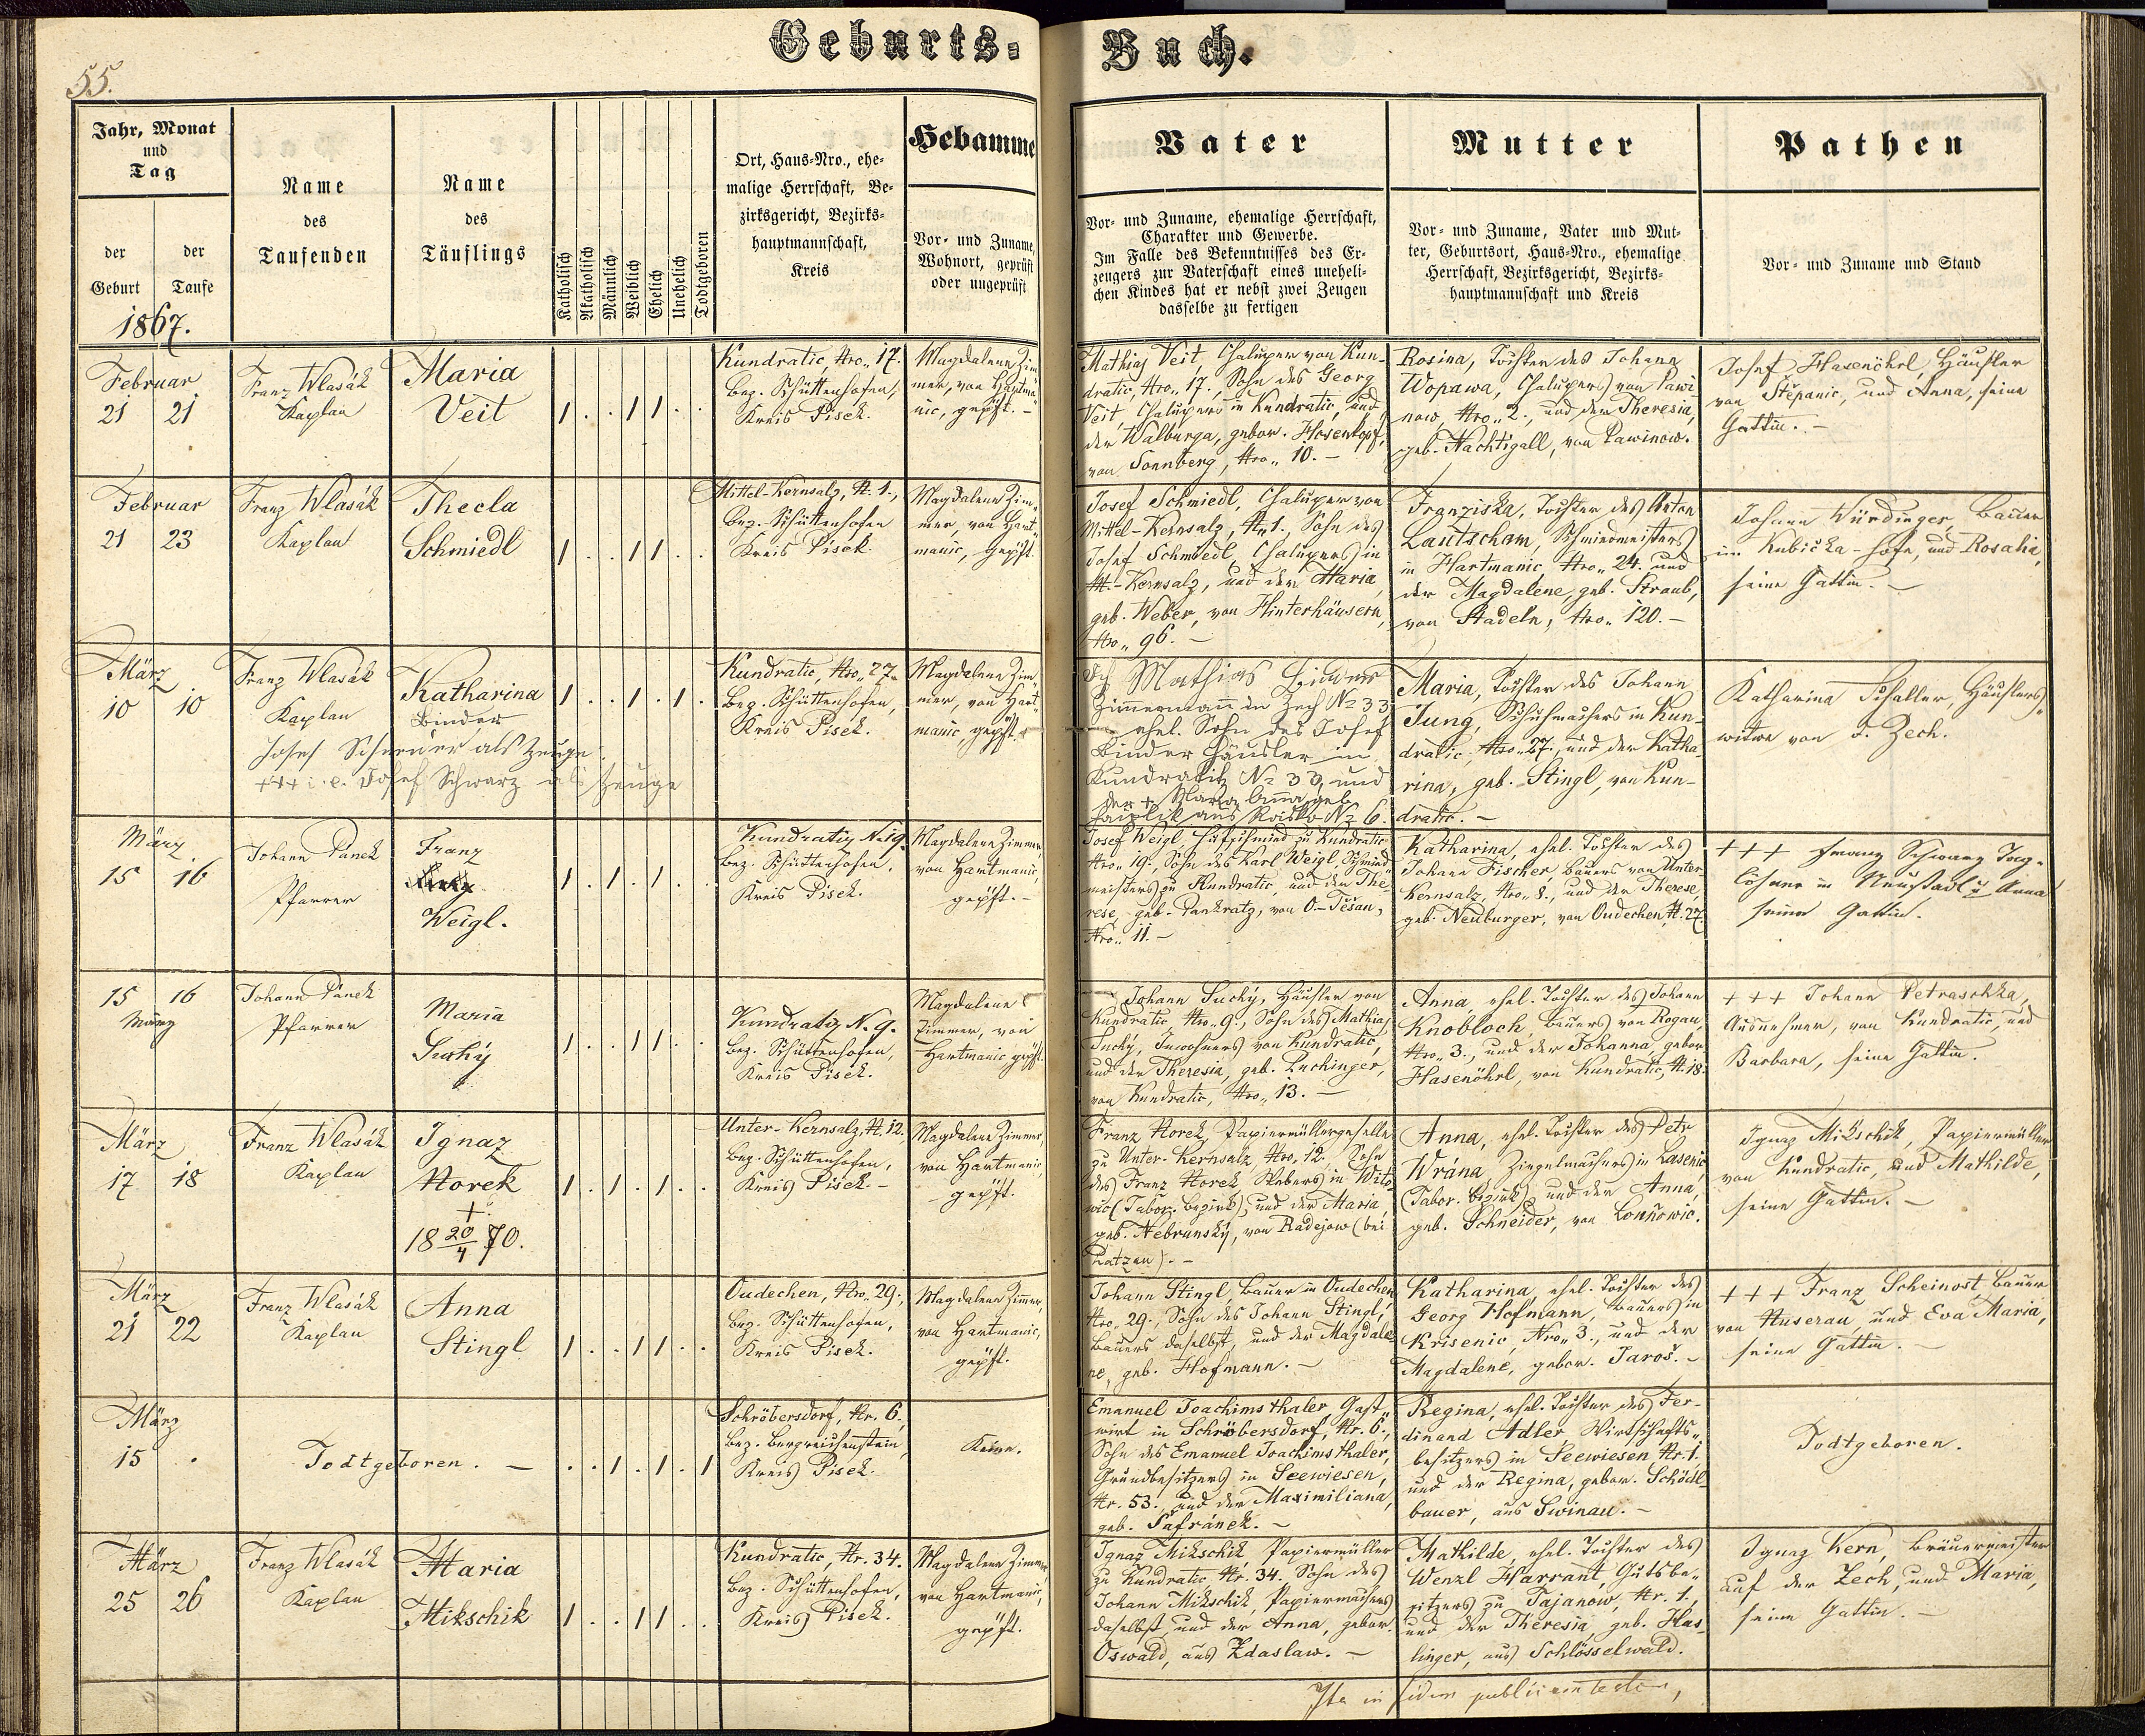 Geburts-Buch.
55.
Jahr, Monat
und
Tag
der Geburt
der Taufe
1867.
Name
des
Taufenden
Name
des
Täuflings
Katholisch
Akatholisch
Männlich
Weiblich
Ehelich
Unehelich
Todtgeboren
Ort, Haus-Nro., ehe-
malige Herrschaft, Be-
zirksgericht, Bezirks-
hauptmannschaft,
Kreis
Hebamme
Vor- und Zuname,
Wohnort, geprüft
oder ungeprüft
Vater
Vor- und Zuname, ehemalige Herrschaft,
Charakter und Gewerbe.
Im Falle des Bekenntnisses des Er-
zeugers zur Vaterschaft eines uneheli-
chen Kindes hat er nebst zwei Zeugen
dasselbe zu fertigen
Mutter
Vor- und Zuname, Vater und Mut-
ter, Geburtsort, Haus-Nro., ehemalige
Herrschaft, Bezirksgericht, Bezirks-
hauptmannschaft und Kreis
Pathen
Vor- und Zuname und Stand
Februar
21 21
Franz Wlasák
Kaplan
Maria
Veit
1 . . 1 1 . .
Kundratic, Nro. 17.
Bez. Schüttenhofen,
Kreis Pisek.
Magdalena Zim-
mer, von Hartma-
nic, gepft. –
Mathias Veit, Chaluper von Kun-
dratic, Nro. 17., Sohn des Georg
Veit, Chalupers in Kundratic, und
der Walburga, gebor. Hosenkopf,
von Sonnberg, Nro. 10. –
Rosina, Tochter des Johann
Wopawa, Chalupers von Pawi-
now, Nro. 2., und der Theresia,
geb. Nachtigall, von Pawinow.
Josef Hasenöhrl, Häusler
von Štěpanic, und Anna, seine
Gattin. –
Februar
21 23
Franz Wlasák
Kaplan
Thecla
Schmiedl
1 . . 1 1 . .
Mittel-Kernsalz, N. 1.,
Bez. Schüttenhofen
Kreis Pisek.
Magdalena Zim-
mer, von Hart-
manic, gepft.
Josef Schmiedl, Chaluper von
Mittel-Kernsalz, Nr. 1., Sohn des
Josef Schmiedl, Chalupers in
M.-Kernsalz, und der Maria,
geb. Weber, von Hinterhäusern,
Nro. 96. –
Franziska, Tochter des Anton
Lautscham, Schmiedmeisters
in Hartmanic Nro. 24. und
der Magdalene, geb. Straub,
von Stadeln, Nro. 120. –
Johann Würdinger, Bauer
im Kubička-Hofe, und Rosalia,
seine Gattin. –
März
10 10
Franz Wlasák
Kaplan
Katharina
Binder
1 . . 1 . 1 .
Kundratic, Nro. 27.
Bez. Schüttenhofen,
Kreis Pisek.
Magdalena Zim-
mer, von Hart-
manic, gepft.
Josef Schreiner als Zeuge
+++ i. e. Josef Schwarz als Zeuge
Ich Mathias Binder
Zimmermann in Zech No 33
ehel. Sohn des Josef
Binder Häusler in
Kundratitz No 33, und
der + Maria Anna geb.
aus No 6.
Maria, Tochter des Johann
Jung, Schuhmachers in Kun-
dratic, Nro. 27., und der Katha-
rina, geb. Stingl, von Kun-
dratic. –
Katharina Schaller, Häuslers-
witwe von d. Zech.
März
15 16
Johann Panek
Pfarrer
Franz
Weigl.
1 . 1 . 1 . .
Kundratiz N. 19.
Bez. Schüttenhofen,
Kreis Pisek.
Magdalena Zimmer,
von Hartmanic,
gepft. –
Josef Weigl, Hufschmied zu Kundratic
Nro. 19., Sohn des Karl Weigl, Schmied-
meisters zu Kundratic, und der The-
rese, geb. Pankratz, von O.-Těšau,
Nro. 11. –
Katharina, ehel. Tochter des
Johann Fischer, Bauers von Unter-
Kernsalz, Nro. 8., und der Therese,
geb. Neuburger, von Oudechen, N. 27.
+++ Franz Schwarz Tag-
löhner in Neustadl u Anna
seine Gattin.
15 16
März
Johann Panek
Pfarrer
Maria
Suchý
1 . . 1 1 . .
Kundratiz N. 9.
Bez. Schüttenhofen,
Kreis Pisek.
Magdalena
Zimmer, von
Hartmanic gepft.
Johann Suchý, Häusler von
Kundratic Nro. 9., Sohn des Mathias
Suchý, Inwohners von Kundratic,
und der Theresia, geb. Puchinger,
von Kundratic, Nro. 13. –
Anna, ehel. Tochter des Johann
Knobloch, Bauers von Rogau,
Nro. 3., und der Johanna, gebor.
Hasenöhrl, von Kundratic, N. 18.
+++ Johann Petraschka,
Ausnehmer, von Kundratic, und
Barbara, seine Gattin.
März
17 18
Franz Wlasák
Kaplan
Ignaz
Horek
+
18 20/4 70.
1 . 1 . 1 . .
Unter-Kernsalz, N. 12.
Bez. Schüttenhofen,
Kreis Pisek. –
Magdalena Zimmer,
von Hartmanic,
gepft.
Franz Horek, Papiermüllergeselle
zu Unter-Kernsalz Nro. 12., Sohn
des Franz Horek, Webers in Wito-
wic (Tabor. Bezirk), und der Maria,
geb. Nebrunský, von Radějow (bei
Patzau). –
Anna, ehel. Tochter des Petr
Wrána, Ziegelmachers in Lasenic
(Tabor. Bezirk), und der Anna,
geb. Schneider, von Lounowic.
Ignaz Mikschik, Papiermüller
von Kundratic, und Mathilde,
seine Gattin. –
März
21 22
Franz Wlasák
Kaplan
Anna
Stingl
1 . . 1 1 . .
Oudechen, Nro. 29.,
Bez. Schüttenhofen,
Kreis Pisek.
Magdalena Zimmer,
von Hartmanic,
gepft.
Johann Stingl, Bauer in Oudechen
Nro. 29., Sohn des Johann Stingl,
Bauers daselbst, und der Magdale-
ne, geb. Hofmann. –
Katharina, ehel. Tochter des
Georg Hofmann, Bauers in
Křisenic, Nro. 3., und der
Magdalene, gebor. Jaroš. –
+++ Franz Scheinost, Bauer
von Huserau, und Eva Maria,
seine Gattin. –
März
15 .
Todtgeboren. –
. . 1 . 1 . 1
Schröbersdorf, Nr. 6.,
Bez. Bergreichenstein,
Kreis Pisek.
Keine.
Emanuel Joachimsthaler, Gast-
wirt in Schröbersdorf, Nr. 6.,
Sohn des Emanuel Joachimsthaler,
Grundbesitzers in Seewiesen,
Nr. 53., und der Maximiliana,
geb. Šafránek. –
Regina, ehel. Tochter des Fer-
dinand Adler Wirtschafts-
besitzers in Seewiesen Nr. 1.
und der Regina, gebor. Schödl-
bauer, aus Swinau. –
Todtgeboren.
März
25 26
Franz Wlasák
Kaplan
Maria
Mikschik
1 . . 1 1 . .
Kundratic, Nr. 34.
Bez. Schüttenhofen,
Kreis Pisek.
Magdalena Zimmer,
von Hartmanic,
gepft.
Ignaz Mikschik, Papiermüller
zu Kundratic Nr. 34. Sohn des
Johann Mikschik, Papiermachers
daselbst, und der Anna, gebor.
Oswald, aus Zdaslaw. –
Mathilde, ehel. Tochter des
Wenzl Harrant, Gutsbe-
sitzers zu Tajanow, Nr. 1.,
und der Theresia, geb. Has-
linger, aus Schlösselwald.
Ignaz Kern, Bräuermeister
auf der Zech, und Maria,
seine Gattin. –
Ita in fidem publicam testor,